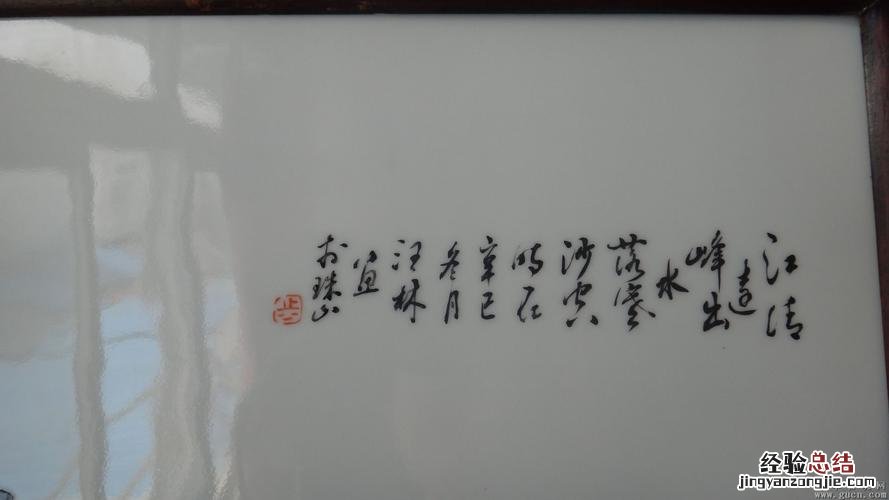 江清
遠
峰出
水
落寒
沙空
時在
辛巳
冬月
汪林
於珠山
经验总结
jingyanzongjie.com
www.gucn.com